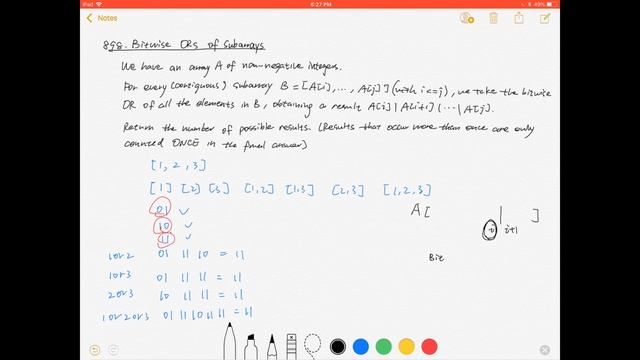 iPad
6:27 PM
49%
Notes
898. Bitwise ORs of Subarrays
We have an array A of non-negative integers.
For every (contiguous) subarray B = [A[i], ..., A[j]] (with i<=j), we take the bitwise
OR of all the elements in B, obtaining a result A[i] | A[i+1] | ... | A[j].
Return the number of possible results. (Results that occur more than once are only
counted ONCE in the final answer)
[1, 2, 3]
[1] [2] [3] [1,2] [1,3] [2,3] [1,2,3]
01 ✓
10 ✓
11 ✓
A[ | ]
i i+1
Bit
1 or 2 01 11 10 = 11
1 or 3 01 11 11 = 11
2 or 3 10 11 11 = 11
1 or 2 or 3 01 11 10 11 11 = 11